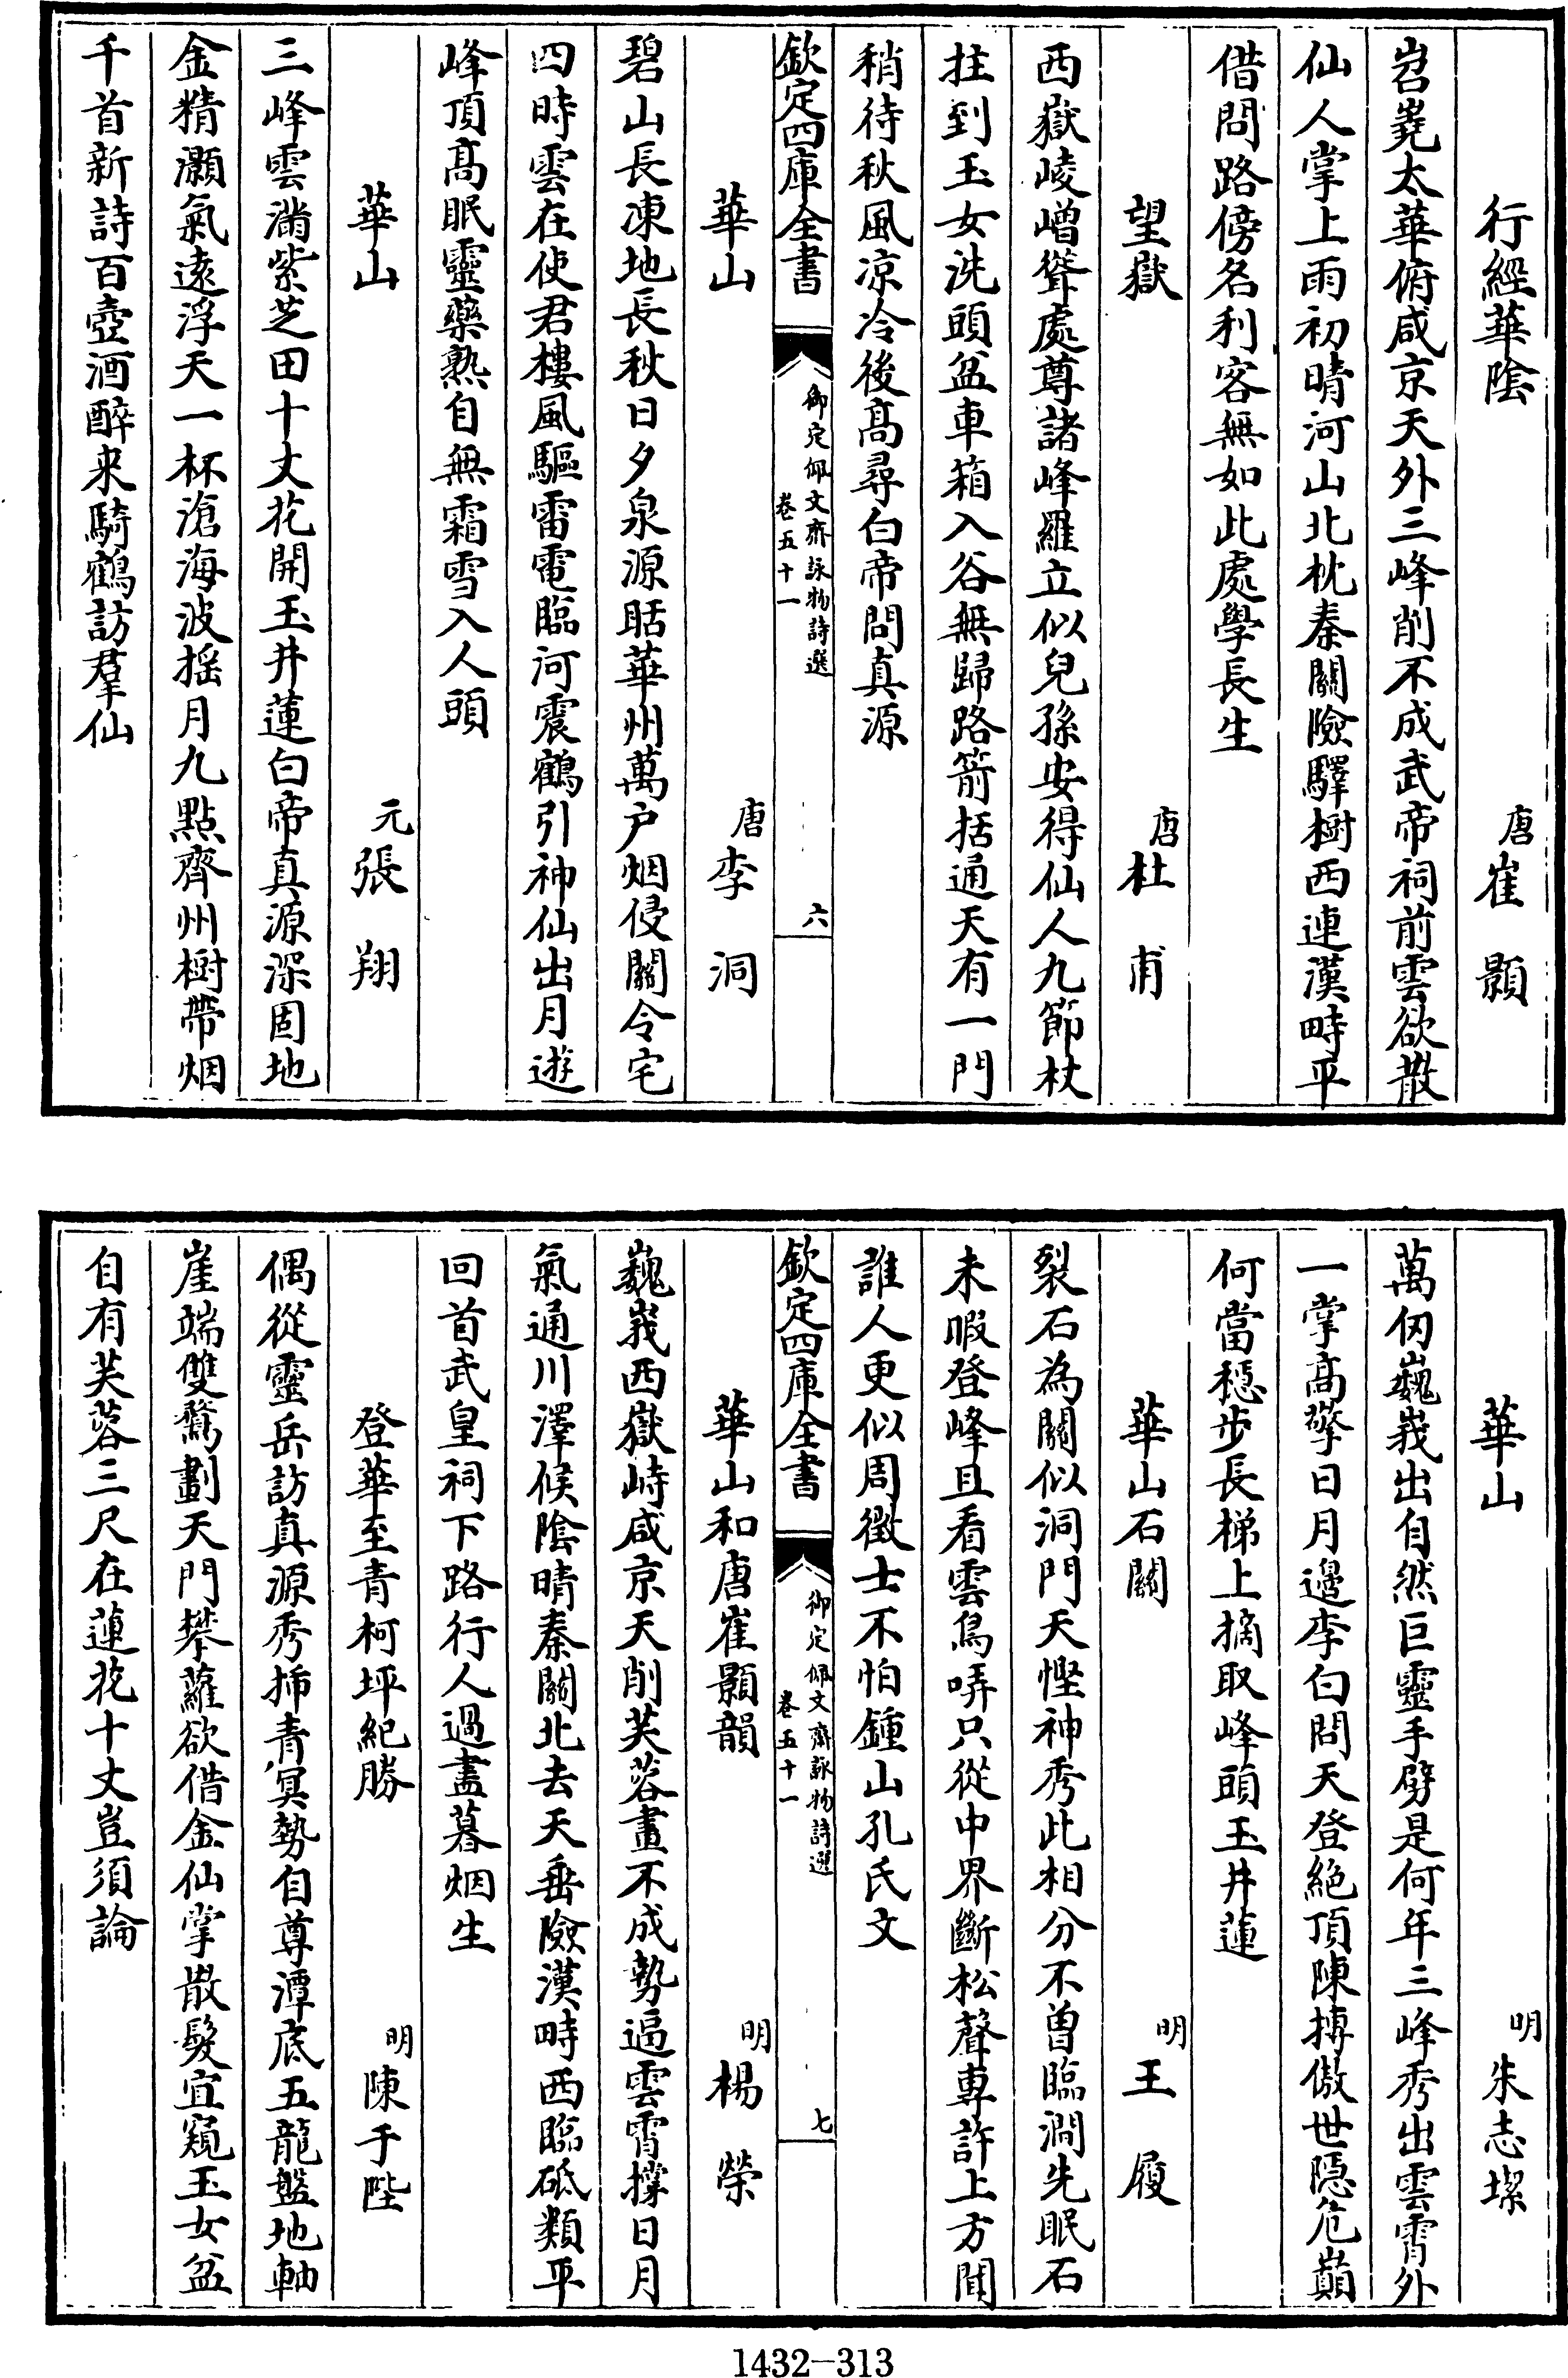 行經華隂 唐 崔顥
岧嶤太華俯咸京天外三峰削不成武帝祠前雲欲散
仙人掌上雨初晴河山北枕秦關險驛樹西連漢畤平
借問路傍名利客無如此處學長生
望嶽 唐 杜甫
西嶽崚嶒聳處尊諸峰羅立似兒孫安得仙人九節杖
拄到玉女洗頭盆車箱入谷無歸路箭括通天有一門
稍待秋風凉冷後髙尋白帝問真源
欽定四庫全書 御定佩文齋詠物詩選 卷五十一 六
華山 唐 李洞
碧山長凍地長秋日夕泉源聒華州萬户烟侵關令宅
四時雲在使君樓風驅雷電臨河震鶴引神仙出月遊
峰頂髙眠靈藥熟自無霜雪入人頭
華山 元 張翔
三峰雲滿紫芝田十丈花開玉井蓮白帝真源深固地
金精灝氣遠浮天一杯滄海波摇月九點齊州樹帶烟
千首新詩百壺酒醉来騎鶴訪羣仙
華山 明 朱志㙷
萬仞巍峩出自然巨靈手劈是何年三峰秀出雲霄外
一掌髙擎日月邉李白問天登絶頂陳摶傲世隠危巔
何當穏步長梯上摘取峰頭玉井蓮
華山石關 明 王履
裂石為關似洞門天慳神秀此相分不曽臨澗先眠石
未暇登峰且看雲鳥哢只從中界斷松聲専許上方聞
誰人更似周徴士不怕鍾山孔氏文
欽定四庫全書 御定佩文齋詠物詩選 卷五十一 七
華山和唐崔顥韻 明 楊榮
巍峩西嶽峙咸京天削芙蓉畫不成勢逼雲霄撑日月
氣通川澤候隂晴秦關北去天垂險漢畤西臨砥類平
回首武皇祠下路行人過盡暮烟生
登華至青柯坪紀勝 明 陳于陛
偶從靈岳訪真源秀揷青冥勢自尊潭底五龍盤地軸
崖端雙鶩劃天門攀蘿欲借金仙掌散髮宜窺玉女盆
自有芙蓉三尺在蓮花十丈豈須論
1432-313